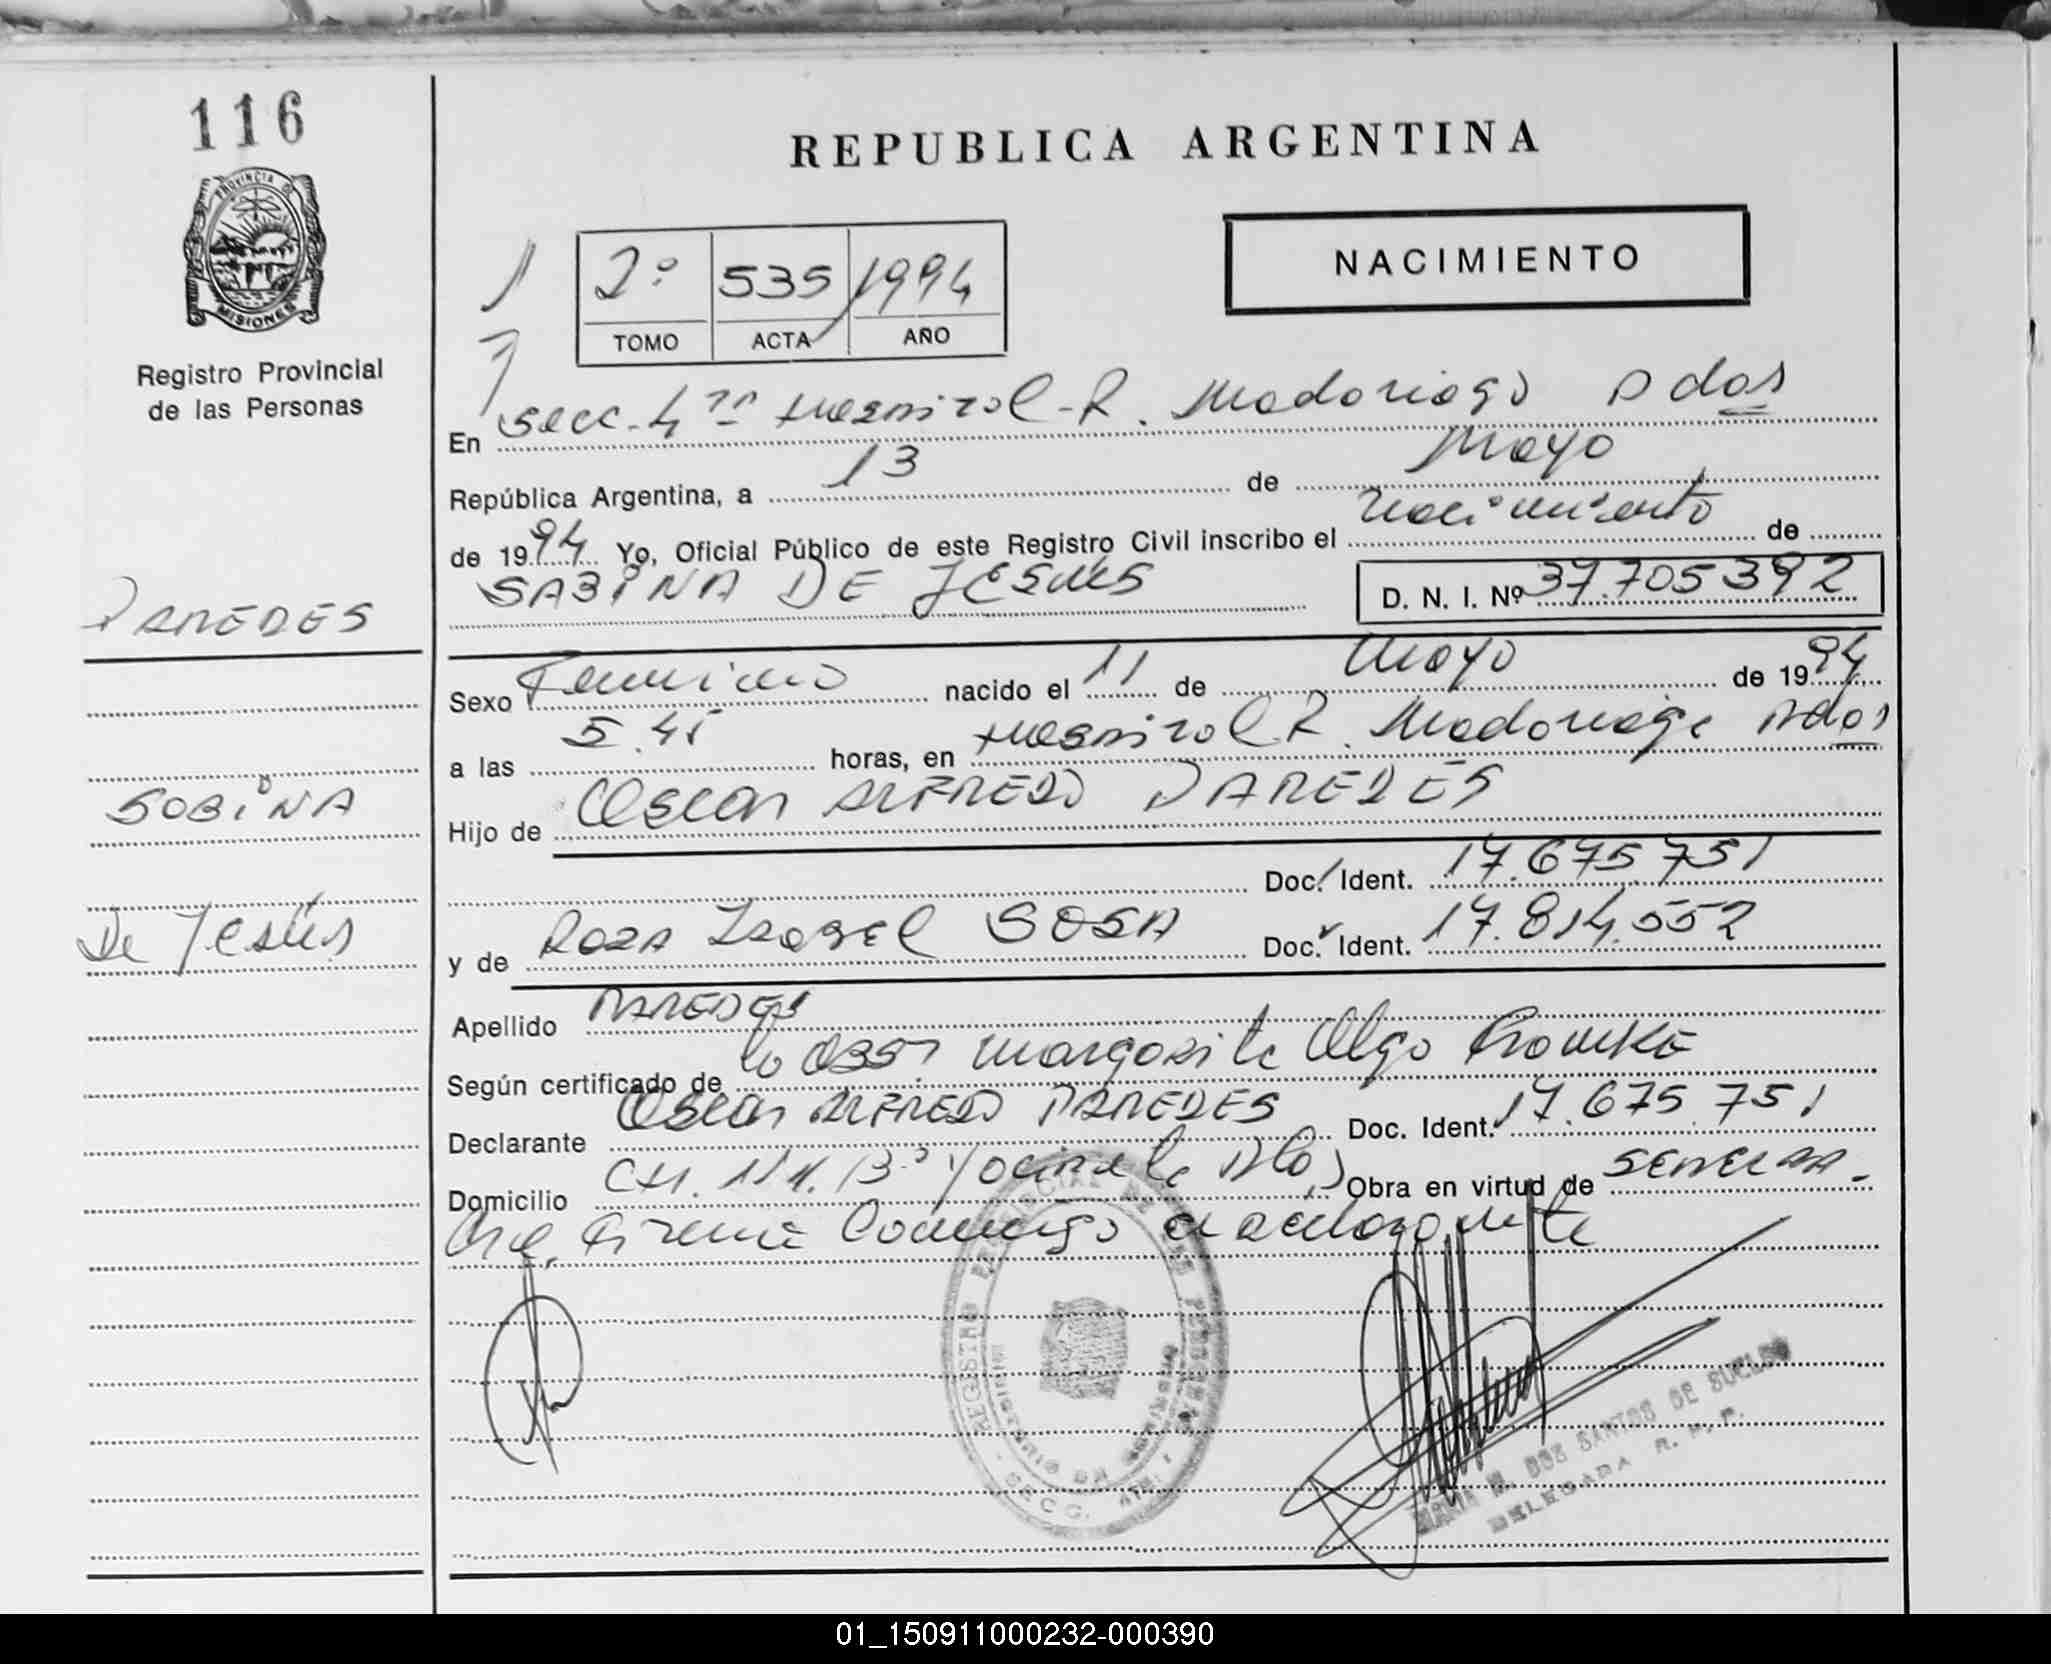 116
REPUBLICA ARGENTINA
PROVINCIA DE
MISIONES
Registro Provincial
de las Personas
NACIMIENTO
2º 535 1994
TOMO ACTA AÑO
En Secc. 4ta Hospital R. Madariaga Pdas
República Argentina, a 13 de Mayo
de 1994 Yo, Oficial Público de este Registro Civil inscribo el nacimiento de
SABINA DE JESUS D. N. I. Nº 37.705.392
PAREDES
Sexo Femenino nacido el 11 de Mayo de 1994
a las 5.45 horas, en Hospital R. Madariaga Pdas
SABINA
Hijo de Oscar ALFREDO PAREDES
Doc. Ident. 17.675.751
De Jesús
y de ROSA Isabel SOSA Doc. Ident. 17.814.552
Apellido PAREDES
Según certificado de la Obst Margarita Olga
Declarante Oscar ALFREDO PAREDES Doc. Ident. 17.675.751
Domicilio CH. Pdas Obra en virtud de
REGISTRO PROVINCIAL DE LAS PERSONAS
MINISTERIO DE GOBIERNO
SECC. 4TA.
MARIA M. DOS SANTOS DE SUELDO
DELEGADA R. P. P.
01_150911000232-000390